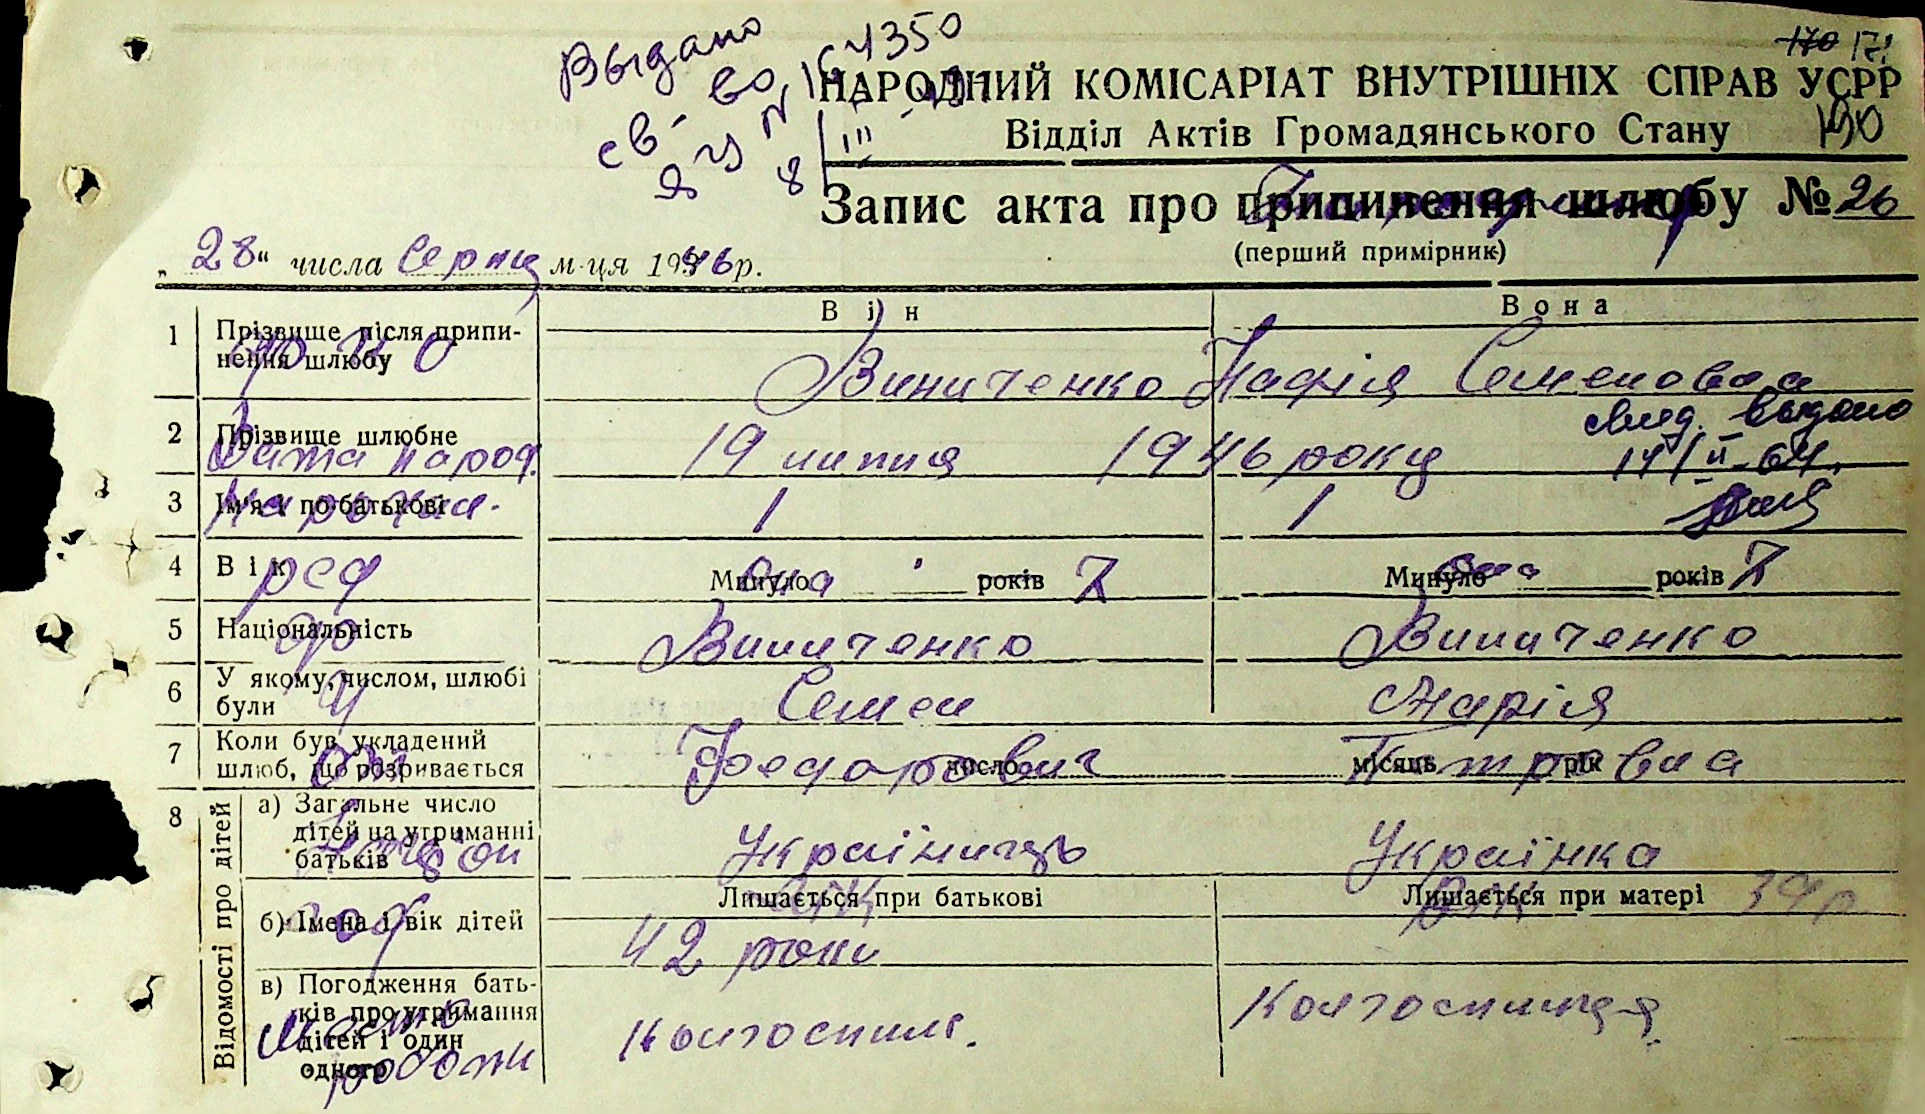 Выдано
св-во
170 171
НАРОДНИЙ КОМІСАРІАТ ВНУТРІШНІХ СПРАВ УСРР
Відділ Актів Громадянського Стану 190
8/III
Запис акта про припинення шлюбу № 26
(перший примірник)
„28“ числа Серпня м-ця 1946 р.
Він Вона
1 Прізвище після припинення шлюбу
Виниченко Надія Семеновна
2 Прізвище шлюбне
Дата народ. 19 липня 1946 року
свид. выдано
14/II-64.
3 Ім'я і по-батькові
1 1
4 Вік Минуло років Минуло років
5 Національність Виниченко Виниченко
6 У якому, числом, шлюбі були Семен Марія
7 Коли був укладений шлюб, що розривається число місяць рік
Федорович Петровна
8 Відомості про дітей
а) Загальне число дітей на утриманні батьків
Українець Українка
Лишається при батькові Лишається при матері
б) Імена і вік дітей
42 роки 39 р
в) Погодження батьків про утримання дітей і один одного
Место роботи Колгоспник. Колгоспниця.